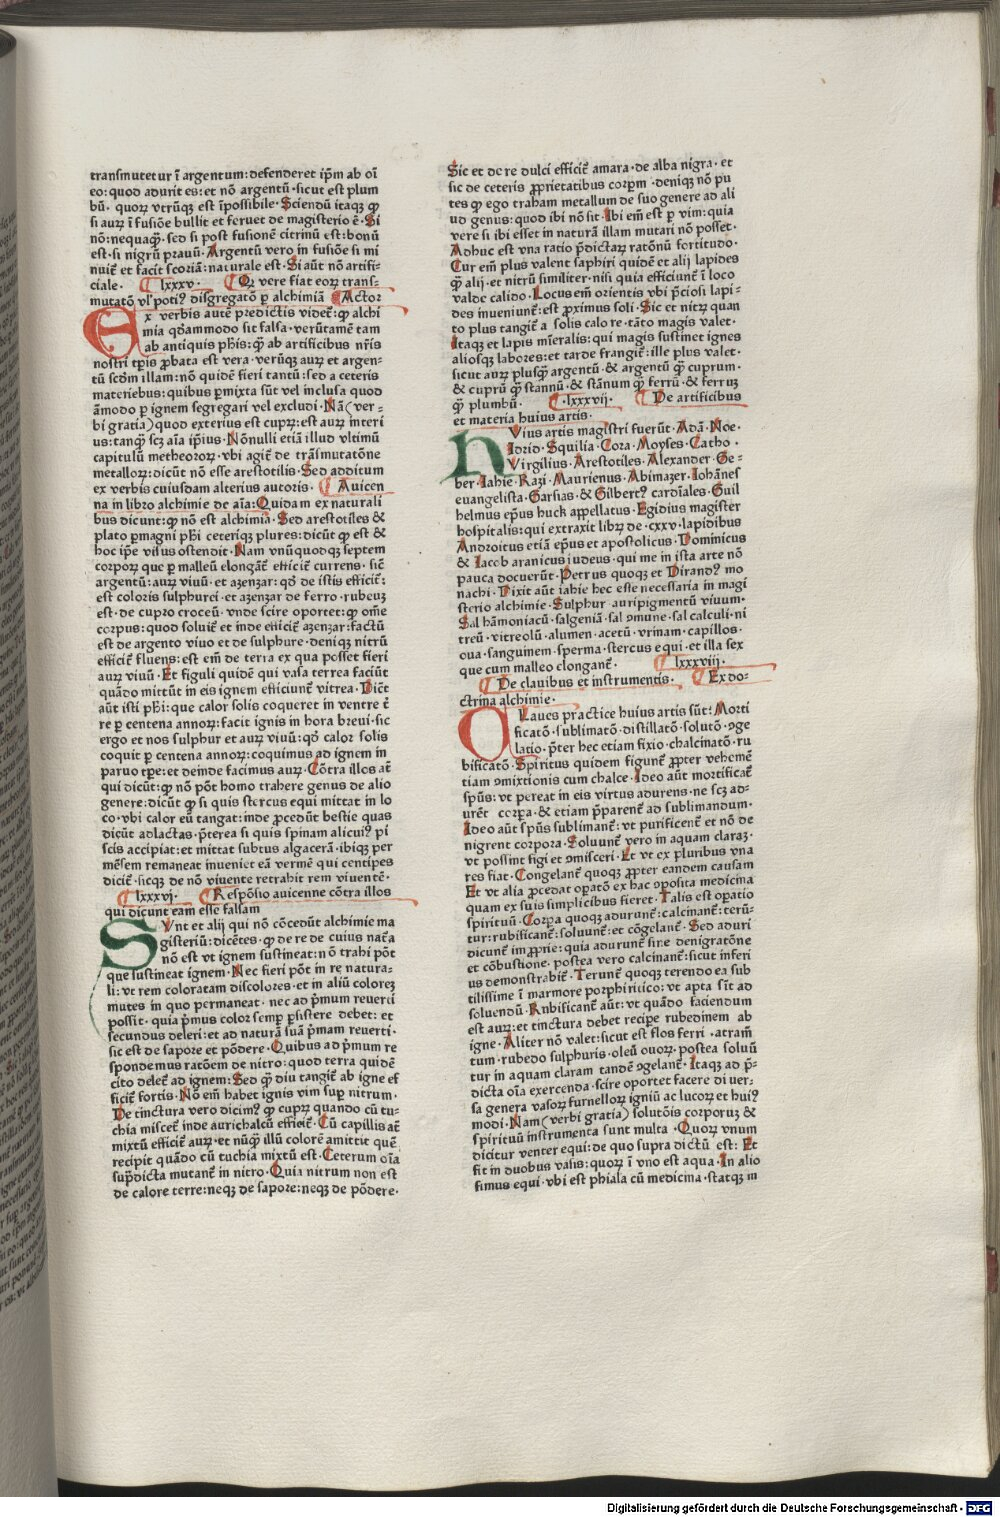 transmutetur ī argentum: defenderet ip̄m ab oī
eo: quod adurit es: et nō argentū· sicut est plum
bū· quorꝫ vtrūqꝫ est īpossibile· Sciendū itaqꝫ ꝙ
si aurꝫ ī fusiōe bullit et feruet de magisterio ē· Si
nō: nequaꝗ̄· sed si post fusionē citrinū est: bonū
est· si nigrū prauū· Argentū vero in fusiōe si mi
nuit̄ et facit scoriā: naturale est· Si aūt nō artifi-
ciale· ¶ lxxxv· ¶ Qꝫ vere fiat eorꝫ trans-
mutatō vl̓ poti⁹ disgregatō ꝑ alchimiā ¶ Actor
Ex verbis autē predictis videt̄: ꝙ alchi
mia qdāmmodo sit falsa· verūtamē tam
ab antiquis ph̄is: ꝗ̄ ab artificibus nr̄is
nostri tp̄is ꝓbata est vera· verūqꝫ aurꝫ et argen-
tū scdm illam: nō quidē fieri tantū: sed a ceteris
materiebus: quibus ꝑmixta sūt vel inclusa quod
āmodo ꝑ ignem segregari vel excludi· Nā (ver-
bi gratia) quod exterius est cuprꝫ: est aurꝫ interi
us: tanꝗ̄ scꝫ aīa ip̄ius· Nōnulli etiā illud vltimū
capitulū metheororꝫ· vbi agit̄ de trāsmutatōne
metallorꝫ: dicūt nō esse arestotilis· Sed additum
ex verbis cuiusdam alterius autoris· ¶ Auicen
na in libro alchimie de aīa: Quidam ex naturali
bus dicunt: ꝙ nō est alchimia· Sed arestotiles &
plato ꝑmagni ph̄i ceteriqꝫ plures: dicūt ꝙ est &
hoc ip̄e visus ostendit· Nam vnūquodqꝫ septem
corporꝫ que ꝑ malleū elongāt̄ efficit̄ currens· sic̄
argentū: aurꝫ viuū· et azenzar: qđ de istis efficit̄:
est coloris sulphurei· et azenzar de ferro· rubeuꝫ
est· de cupro croceū· vnde scire oportet: ꝙ om̄e
corpus: quod soluit̄ et inde efficit̄ azenzar: factū
est de argento viuo et de sulphure· deniqꝫ nitrū
efficit̄ fluens: est em̄ de terra ex qua posset fieri
aurꝫ viuū· Et figuli quidē qui vasa terrea faciūt
quādo mittūt in eis ignem efficiunt̄ vitrea· Dicūt
aūt isti ph̄i: que calor solis coqueret in ventre t̄
re ꝑ centena annorꝫ: facit ignis in hora breui· sic
ergo et nos sulphur et aurꝫ viuū: qđ calor solis
coquit ꝑ centena annorꝫ: coquimus ad ignem in
paruo tp̄e: et deinde facimus aurꝫ· Cōtra illos āt
qui dicūt: ꝙ nō pōt homo trahere genus de alio
genere: dicūt ꝙ si quis stercus equi mittat in lo
co· vbi calor eū tangat: inde ꝓcedūt bestie quas
dicūt adlactas· p̄terea si quis spinam alicui⁹ pi
scis accipiat: et mittat subtus algacerā· ibiqꝫ per
mēsem remaneat inueniet eā vermē qui centipes
dicit̄· sicqꝫ de nō viuente retrahit rem viuentē·
¶ lxxxvi· ¶ Respōsio auicenne cōtra illos
qui dicunt eam esse falsam
Sunt et alij qui nō cōcedūt alchimie ma
gisteriū: dicētes· ꝙ de re de cuius nat̄a
nō est vt ignem sustineat: nō trahi pōt
que sustineat ignem· Nec fieri pōt in re natura-
li: vt rem coloratam discolores· et in aliū colorem
mutes in quo permaneat· nec ad p̄mum reuerti
possit· quia p̄mus color semꝑ ꝑsistere debet: et
secundus deleri: et ad naturā suā p̄mam reuerti·
sic est de sapore et pōdere· Quibus ad p̄mum re
spondemus ratōem de nitro: quod terra quidē
cito delet̄ ad ignem: Sed ꝙ diu tangit̄ ab igne ef
ficit̄ fortis· Nō em̄ habet ignis vim suꝑ nitrum·
De tinctura vero dicim⁹ ꝙ cuprꝫ quando cū tu-
chia miscet̄ inde aurichalcū efficit̄· Cū capillis āt
mixtū efficit̄ aurꝫ· et nūꝗ̄ illū colorē amittit quē
recipit quādo cū tuchia mixtū est· Ceterum oīa
sup̄dicta mutant̄ in nitro· Quia nitrum non est
de calore terre: neqꝫ de sapore: neqꝫ de pōdere·
Sic et de re dulci efficit̄ amara· de alba nigra· et
sic de ceteris ꝓprietatibus corꝑm· deniqꝫ nō pu
tes ꝙ ego traham metallum de suo genere ad ali
ud genus: quod ibi nō sit· Ibi em̄ est ꝑ vim: quia
vere si ibi esset in naturā illam mutari nō posset·
Adhuc est vna ratio p̄dictarꝫ ratōnū fortitudo·
Cur em̄ plus valent saphiri quidē et alij lapides
ꝗ̄ alij· et nitrū similiter· nisi quia efficiunt̄ ī loco
valde calido· Locus em̄ orientis vbi p̄ciosi lapi-
des inueniunt̄: est ꝓximus soli· Sic et nitrꝫ quan
to plus tangit̄ a solis calore· tāto magis valet·
Itaqꝫ et lapis mīeralis: qui magis sustinet ignes
aliosqꝫ labores: et tarde frangit̄: ille plus valet·
sicut aurꝫ plusꝗ̄ argentū· & argentū ꝗ̄ cuprum·
& cuprū ꝗ̄ stannū· & stānum ꝗ̄ ferrū· & ferruꝫ
ꝗ̄ plumbū· ¶ lxxxvij· ¶ De artificibus
et materia huius artis·
Huius artis magistri fuerūt· Adā· Noe·
Idrid· Squilia· Cora· Moyses· Catho·
Virgilius· Arestotiles· Alexander· Ge-
ber· Iahie· Razi· Maurienus· Abimazer· Iohānes
euangelista· Garsias· & Gilbert⁹ cardīales· Guil
helmus ep̄us huck appellatus· Egidius magister
hospitalis: qui extraxit librꝫ de ·cxxv· lapidibus
Androitus etiā ep̄us et apostolicus· Dominicus
& Iacob aranicus iudeus· qui me in ista arte nō
pauca docuerūt· Petrus quoqꝫ et Dirand⁹ mo
nachi· Dixit aūt iahie hec esse necessaria in magi
sterio alchimie· Sulphur auripigmentū viuum·
Sal hāmoniacū· salgeniā· sal ꝯmune· sal calculi· ni
treū· vitreolū· alumen· acetū· vrinam· capillos·
oua· sanguinem· sperma· stercus equi· et illa sex
que cum malleo elongant̄· ¶ lxxxviij·
¶ De clauibus et instrumentis· ¶ Ex do-
ctrina alchimie·
Claues practice huius artis sūt: Morti
ficatō· sublimatō· distillatō· solutō· ꝯge
latio· p̄ter hec etiam fixio· chalcinatō· ru
bificatō· Spiritus quidem figunt̄ ꝓpter vehemē
tiam ꝯmixtionis cum chalce· Ideo aūt mortificāt̄
sp̄us: vt pereat in eis virtus adurens· ne scꝫ ad-
urēt corꝑa· & etiam p̄parent̄ ad sublimandum·
Ideo aūt sp̄us sublimant̄: vt purificent̄ et nō de
nigrent corpora· Soluunt̄ vero in aquam claraꝫ·
vt possint figi et ꝯmisceri· Et vt ex pluribus vna
res fiat· Congelant̄ quoqꝫ ꝓpter eandem causam
Et vt alia ꝓcedat oꝑatō ex hac ꝯposita medicina
quam ex suis simplicibus fieret· Talis est oꝑatio
spirituū· Corꝑa quoqꝫ adurunt̄: calcinant̄: terū-
tur: rubificant̄: soluunt̄: et cōgelant̄· Sed aduri
dicunt̄ imꝓprie: quia adurunt̄ sine denigratōne
et cōbustione· postea vero calcinant̄: sicut inferi
us demonstrabit̄· Terunt̄ quoqꝫ terendo ea sub
tilissime ī marmore porphiritico: vt apta sīt ad
soluendū· Rubificant̄ aūt: vt quādo faciendum
est aurꝫ: et tinctura debet reciꝑe rubedinem ab
igne· Aliter nō valet: sicut est flos ferri· atram̄
tum· rubedo sulphuris· oleū ouorꝫ· postea soluū
tur in aquam claram tandē ꝯgelant̄· Itaqꝫ ad p̄-
dicta oīa exercenda· scire oportet facere di uer-
sa genera vasorꝫ furnellorꝫ igniū ac lucorꝫ et hui⁹
modi· Nam (verbi gratia) solutōis corporuꝫ &
spirituū instrumenta sunt multa· Quorꝫ vnum
dicitur venter equi: de quo supra dictū est: Et
fit in duobus vasis: quorꝫ ī vno est aqua· In alio
fimus equi· vbi est phiala cū medicina· statqꝫ in
Digitalisierung gefördert durch die Deutsche Forschungsgemeinschaft - DFG